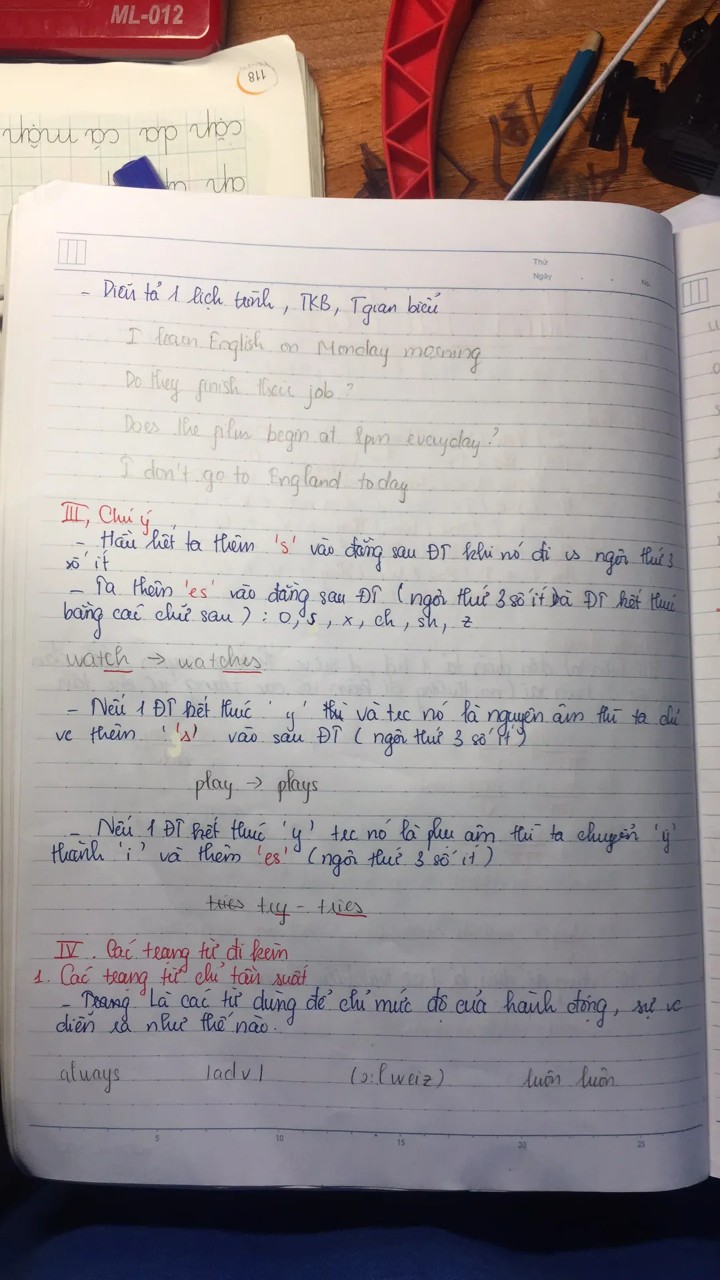 ML-012
118
cặp da cá mập
ap
Thứ
Ngày . . No.
- Diễn tả 1 lịch trình, TKB, Tgian biểu
I learn English on Monday morning
Do they finish their job?
Does the plus begin at 8pm everyday?
I don't go to England today
III, Chú ý
- Hầu hết ta thêm 's' vào đằng sau ĐT khi nó đi vs ngôi thứ 3
số ít
- Ta thêm 'es' vào đằng sau ĐT (ngôi thứ 3 số ít và ĐT kết thúc
bằng các chữ sau) : o, s, x, ch, sh, z
watch → watches
- Nếu 1 ĐT kết thúc 'y' thì và trc nó là nguyên âm thì ta chỉ
vc thêm 's' vào sau ĐT (ngôi thứ 3 số ít)
play → plays
- Nếu 1 ĐT kết thúc 'y' trc nó là phụ âm thì ta chuyển 'y'
thành 'i' và thêm 'es' (ngôi thứ 3 số ít)
tries try - tries
IV. Các trạng từ đi kèm
1. Các trạng từ chỉ tần suất
- Trạng Là các từ dùng để chỉ mức độ của hành động, sự vc
diễn ra như thế nào.
always |adv| (ɔ:lweiz) luôn luôn
5 10 15 20 25